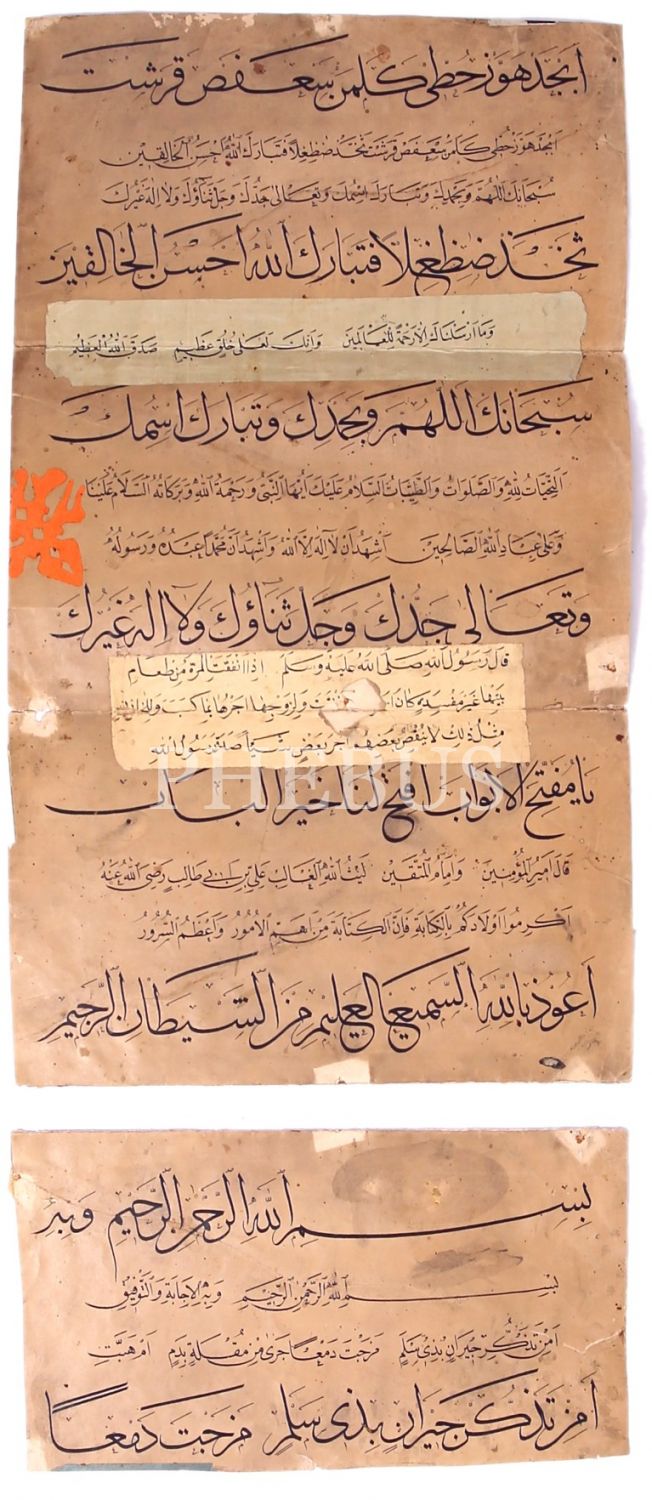 ابجد هوز حطي كلمن سعفص قرشت
ابجد هوز حطي كلمن سعفص قرشت ثخذ ضظغلا فتبارك الله احسن الخالقين
سبحانك اللهم وبحمدك وتبارك اسمك وتعالى جدك وجل ثناؤك ولا اله غيرك
ثخذ ضظغلا فتبارك الله احسن الخالقين
وما ارسلناك الا رحمة للعالمين وانك لعلى خلق عظيم صدق الله العظيم
سبحانك اللهم وبحمدك وتبارك اسمك
التحيات لله والصلوات والطيبات السلام عليك ايها النبي ورحمة الله وبركاته السلام علينا
وعلى عباد الله الصالحين اشهد ان لا اله الا الله واشهد ان محمدا عبده ورسوله
وتعالى جدك وجل ثناؤك ولا اله غيرك
قال رسول الله صلى الله عليه وسلم اذا انفقت المرة من طعام
بيتها غير مفسدة كان ولزوجها اجرها بما كسب
مثل ذلك لا ينقص بعضهم اجر بعض شيئا صدق رسول الله
PHEBUS
يا مفتح الابواب افتح لنا خير الباب
قال امير المؤمنين وامام المتقين ليث الله الغالب علي بن ابي طالب رضي الله عنه
اكرموا اولادكم بالكتابة فان الكتابة من اهم الامور واعظم السرور
اعوذ بالله السميع العليم من الشيطان الرجيم
بسم الله الرحمن الرحيم وبه
بسم الله الرحمن الرحيم وبه الاجابة والتوفيق
امن تذكر جيران بذي سلم مزجت دمعا جرى من مقلة بدم ام هبت
امن تذكر جيران بذي سلم مزجت دمعا